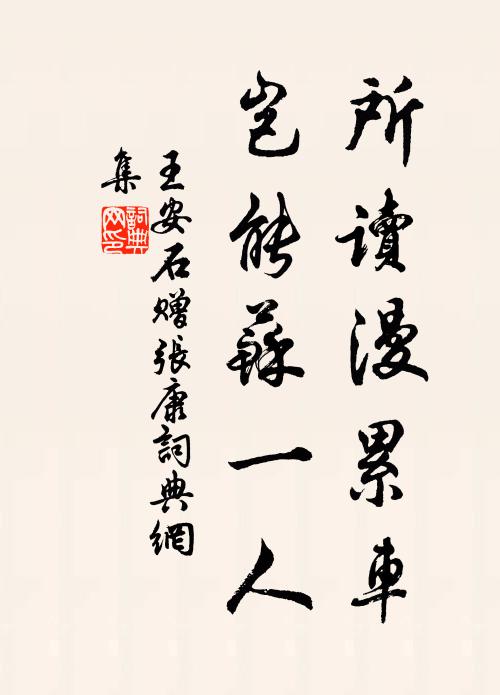 所讀漫累車
豈能蘇一人
王安石贈張康詞典網
集
詞典网印